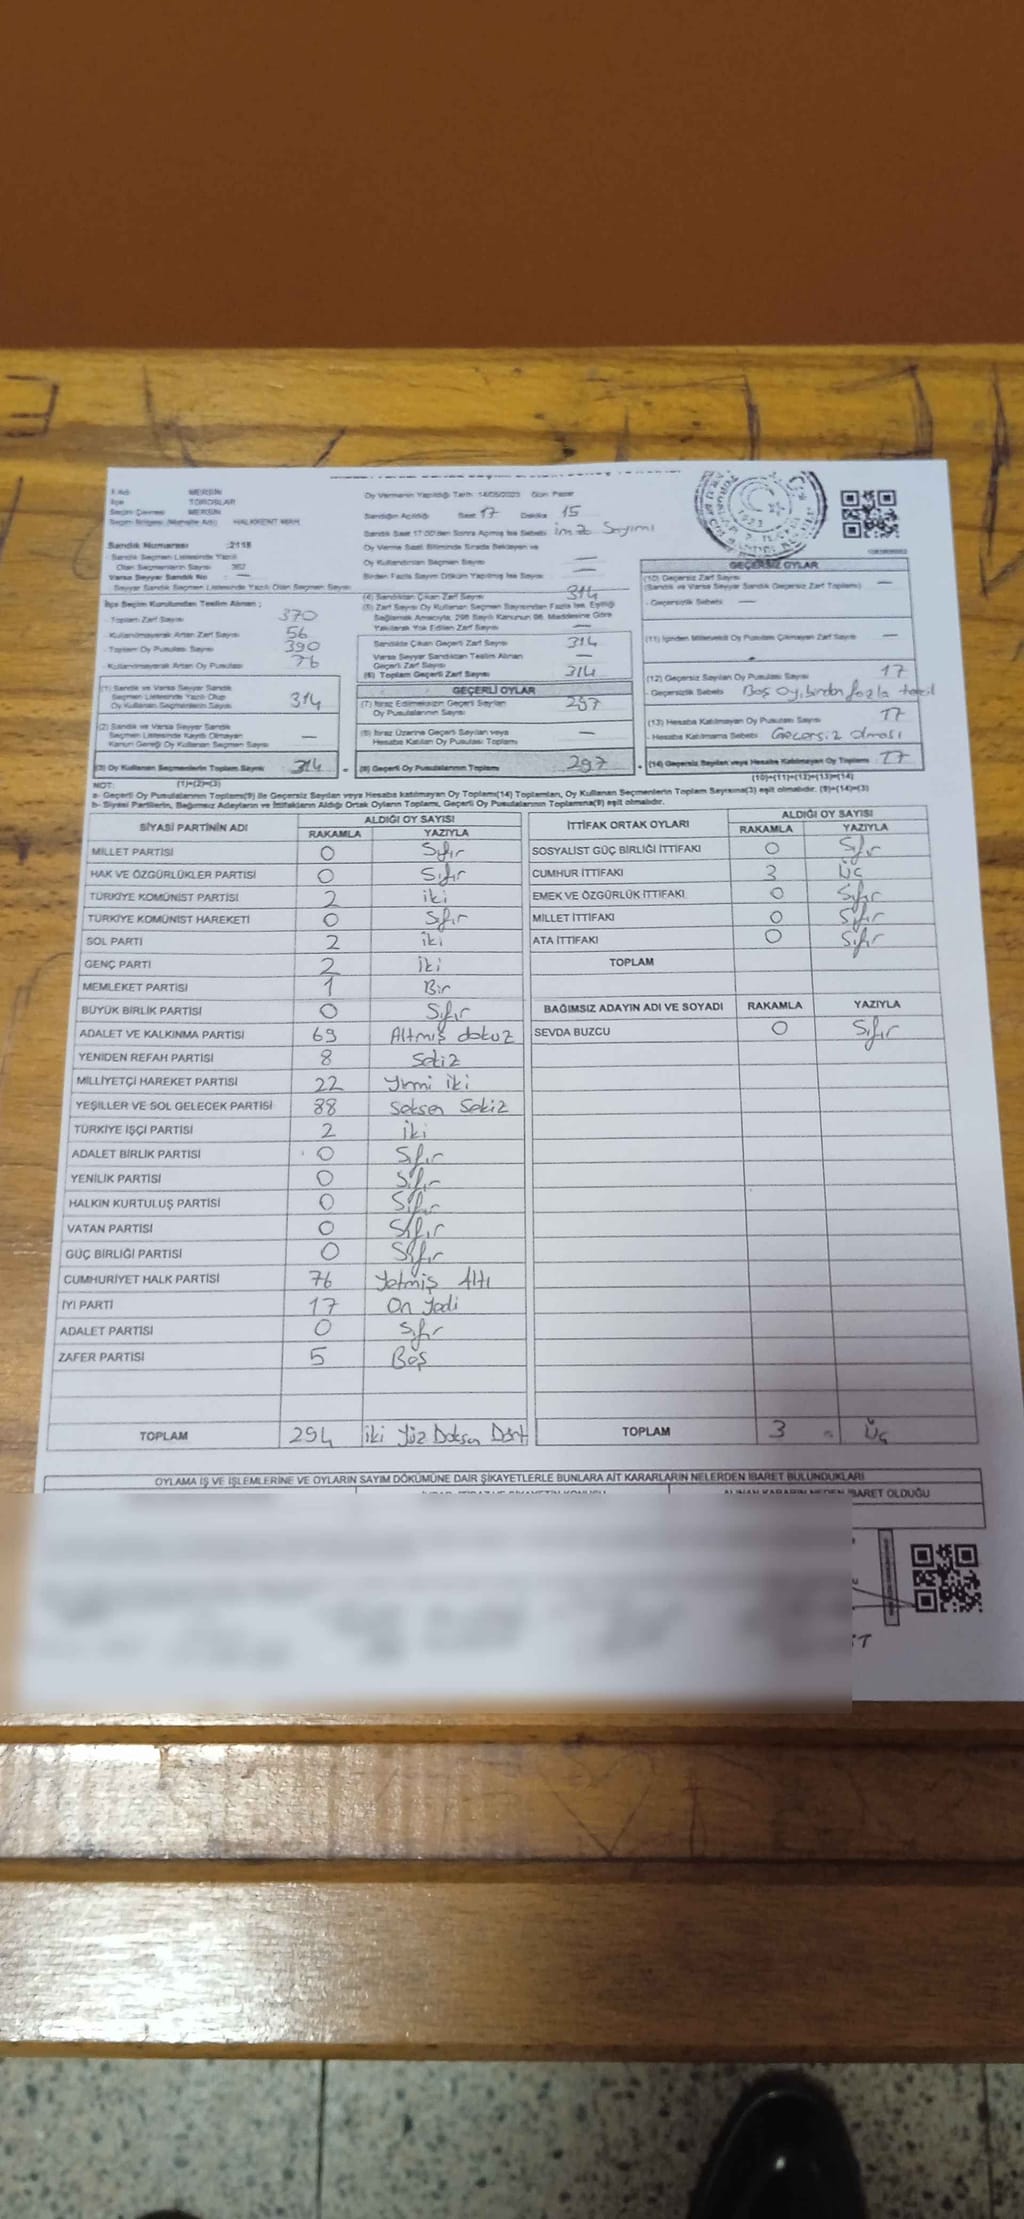 İl Adı MERSİN
İlçe TOROSLAR
Seçim Çevresi MERSİN
Seçim Bölgesi (Mahalle Adı) HALKKENT MAH.
Sandık Numarası :2118
Sandık Seçmen Listesinde Yazılı
Olan Seçmenlerin Sayısı
Varsa Seyyar Sandık No —
Seyyar Sandık Seçmen Listesinde Yazılı Olan Seçmen Sayısı
Oy Vermenin Yapıldığı Tarih: 14/05/2023 Gün Pazar
Sandığın Açıldığı Saat 17 Dakika 15
Sandık Saat 17.00'den Sonra Açılmış İse Sebebi imza Sayımı
Oy Verme Saati Bitiminde Sırada Bekleyen ve
Oy Kullandırılan Seçmen Sayısı —
Birden Fazla Sayım Döküm Yapılmış İse Sayısı —
İlçe Seçim Kurulundan Teslim Alınan ;
- Toplam Zarf Sayısı 370
- Kullanılmayarak Artan Zarf Sayısı 56
- Toplam Oy Pusulası Sayısı 390
- Kullanılmayarak Artan Oy Pusulası 76
(1) Sandık ve Varsa Seyyar Sandık
Seçmen Listesinde Yazılı Olup
Oy Kullanan Seçmenlerin Sayısı 314
(2) Sandık ve Varsa Seyyar Sandık
Seçmen Listesinde Kayıtlı Olmayan
Kanun Gereği Oy Kullanan Seçmen Sayısı —
(3) Oy Kullanan Seçmenlerin Toplam Sayısı 314
(4) Sandıktan Çıkan Zarf Sayısı 314
(5) Zarf Sayısı Oy Kullanan Seçmen Sayısından Fazla İse, Eşitliği
Sağlamak Amacıyla, 298 Sayılı Kanunun 98. Maddesine Göre
Yakılarak Yok Edilen Zarf Sayısı —
Sandıkta Çıkan Geçerli Zarf Sayısı 314
Varsa Seyyar Sandıktan Teslim Alınan
Geçerli Zarf Sayısı —
(6) Toplam Geçerli Zarf Sayısı 314
GEÇERLİ OYLAR
(7) İtiraz Edilmeksizin Geçerli Sayılan
Oy Pusulalarının Sayısı 297
(8) İtiraz Üzerine Geçerli Sayılan veya
Hesaba Katılan Oy Pusulası Toplamı —
(9) Geçerli Oy Pusulalarının Toplamı 297
GEÇERSİZ OYLAR
(10) Geçersiz Zarf Sayısı
(Sandık ve Varsa Seyyar Sandık Geçersiz Zarf Toplamı) —
- Geçersizlik Sebebi —
(11) İçinden Milletvekili Oy Pusulası Çıkmayan Zarf Sayısı —
(12) Geçersiz Sayılan Oy Pusulası Sayısı 17
- Geçersizlik Sebebi Boş Oy, birden fazla tercil
(13) Hesaba Katılmayan Oy Pusulası Sayısı 17
- Hesaba Katılmama Sebebi Geçersiz olması
(14) Geçersiz Sayılan veya Hesaba Katılmayan Oy Toplamı 17
NOT: (1)+(2)=(3) (10)+(11)+(12)+(13)=(14)
a- Geçerli Oy Pusulalarının Toplamı(9) ile Geçersiz Sayılan veya Hesaba katılmayan Oy Toplamı(14) Toplamları, Oy Kullanan Seçmenlerin Toplam Sayısına(3) eşit olmalıdır. (9)+(14)=(3)
b- Siyasi Partilerin, Bağımsız Adayların ve İttifakların Aldığı Ortak Oyların Toplamı, Geçerli Oy Pusulalarının Toplamına(9) eşit olmalıdır.
SİYASİ PARTİNİN ADI ALDIĞI OY SAYISI
RAKAMLA YAZIYLA
MİLLET PARTİSİ 0 Sıfır
HAK VE ÖZGÜRLÜKLER PARTİSİ 0 Sıfır
TÜRKİYE KOMÜNİST PARTİSİ 2 iki
TÜRKİYE KOMÜNİST HAREKETİ 0 Sıfır
SOL PARTİ 2 iki
GENÇ PARTİ 2 İki
MEMLEKET PARTİSİ 1 Bir
BÜYÜK BİRLİK PARTİSİ 0 Sıfır
ADALET VE KALKINMA PARTİSİ 69 Altmış dokuz
YENİDEN REFAH PARTİSİ 8 Sekiz
MİLLİYETÇİ HAREKET PARTİSİ 22 Yirmi iki
YEŞİLLER VE SOL GELECEK PARTİSİ 88 Seksen Sekiz
TÜRKİYE İŞÇİ PARTİSİ 2 İki
ADALET BİRLİK PARTİSİ 0 Sıfır
YENİLİK PARTİSİ 0 Sıfır
HALKIN KURTULUŞ PARTİSİ 0 Sıfır
VATAN PARTİSİ 0 Sıfır
GÜÇ BİRLİĞİ PARTİSİ 0 Sıfır
CUMHURİYET HALK PARTİSİ 76 Yetmiş Altı
İYİ PARTİ 17 On Yedi
ADALET PARTİSİ 0 Sıfır
ZAFER PARTİSİ 5 Beş
TOPLAM 294 iki Yüz Doksan Dört
İTTİFAK ORTAK OYLARI ALDIĞI OY SAYISI
RAKAMLA YAZIYLA
SOSYALİST GÜÇ BİRLİĞİ İTTİFAKI 0 Sıfır
CUMHUR İTTİFAKI 3 Üç
EMEK VE ÖZGÜRLÜK İTTİFAKI 0 Sıfır
MİLLET İTTİFAKI 0 Sıfır
ATA İTTİFAKI 0 Sıfır
TOPLAM
BAĞIMSIZ ADAYIN ADI VE SOYADI RAKAMLA YAZIYLA
SEVDA BUZCU 0 Sıfır
TOPLAM 3 Üç
OYLAMA İŞ VE İŞLEMLERİNE VE OYLARIN SAYIM DÖKÜMÜNE DAİR ŞİKAYETLERLE BUNLARA AİT KARARLARIN NELERDEN İBARET BULUNDUKLARI
ALINAN KARARIN NEDEN İBARET OLDUĞU